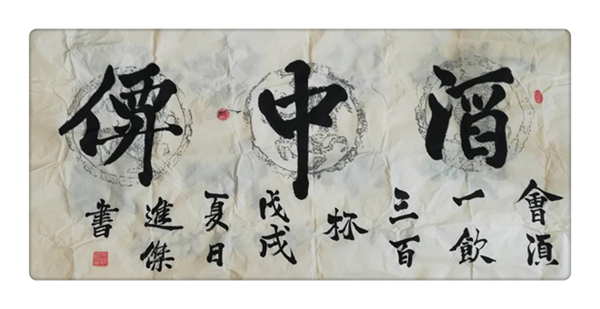 酒中僊
會湏
一飲
三百
杯
戊戌
夏日
進傑
書